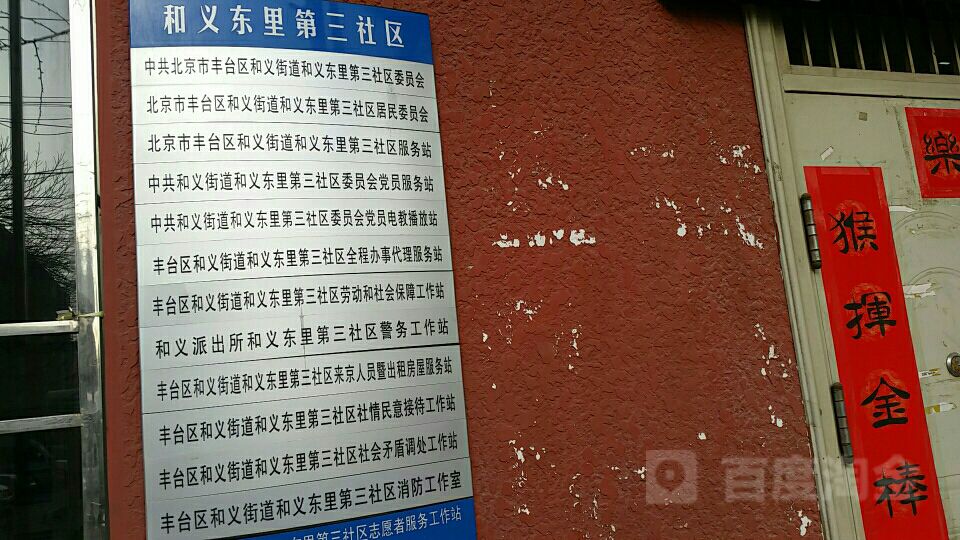 和义东里第三社区
中共北京市丰台区和义街道和义东里第三社区委员会
北京市丰台区和义街道和义东里第三社区居民委员会
北京市丰台区和义街道和义东里第三社区服务站
中共和义街道和义东里第三社区委员会党员服务站
中共和义街道和义东里第三社区委员会党员电教播放站
丰台区和义街道和义东里第三社区全程办事代理服务站
丰台区和义街道和义东里第三社区劳动和社会保障工作站
和义派出所和义东里第三社区警务工作站
丰台区和义街道和义东里第三社区来京人员暨出租房屋服务站
丰台区和义街道和义东里第三社区社情民意接待工作站
丰台区和义街道和义东里第三社区社会矛盾调处工作站
丰台区和义街道和义东里第三社区消防工作室
东里第三社区志愿者服务工作站
樂
猴揮金棒
百度